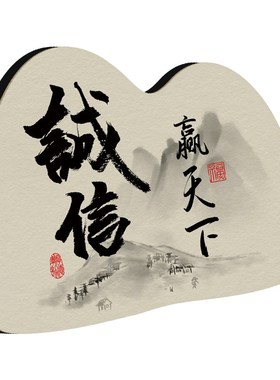 誠信
赢天下